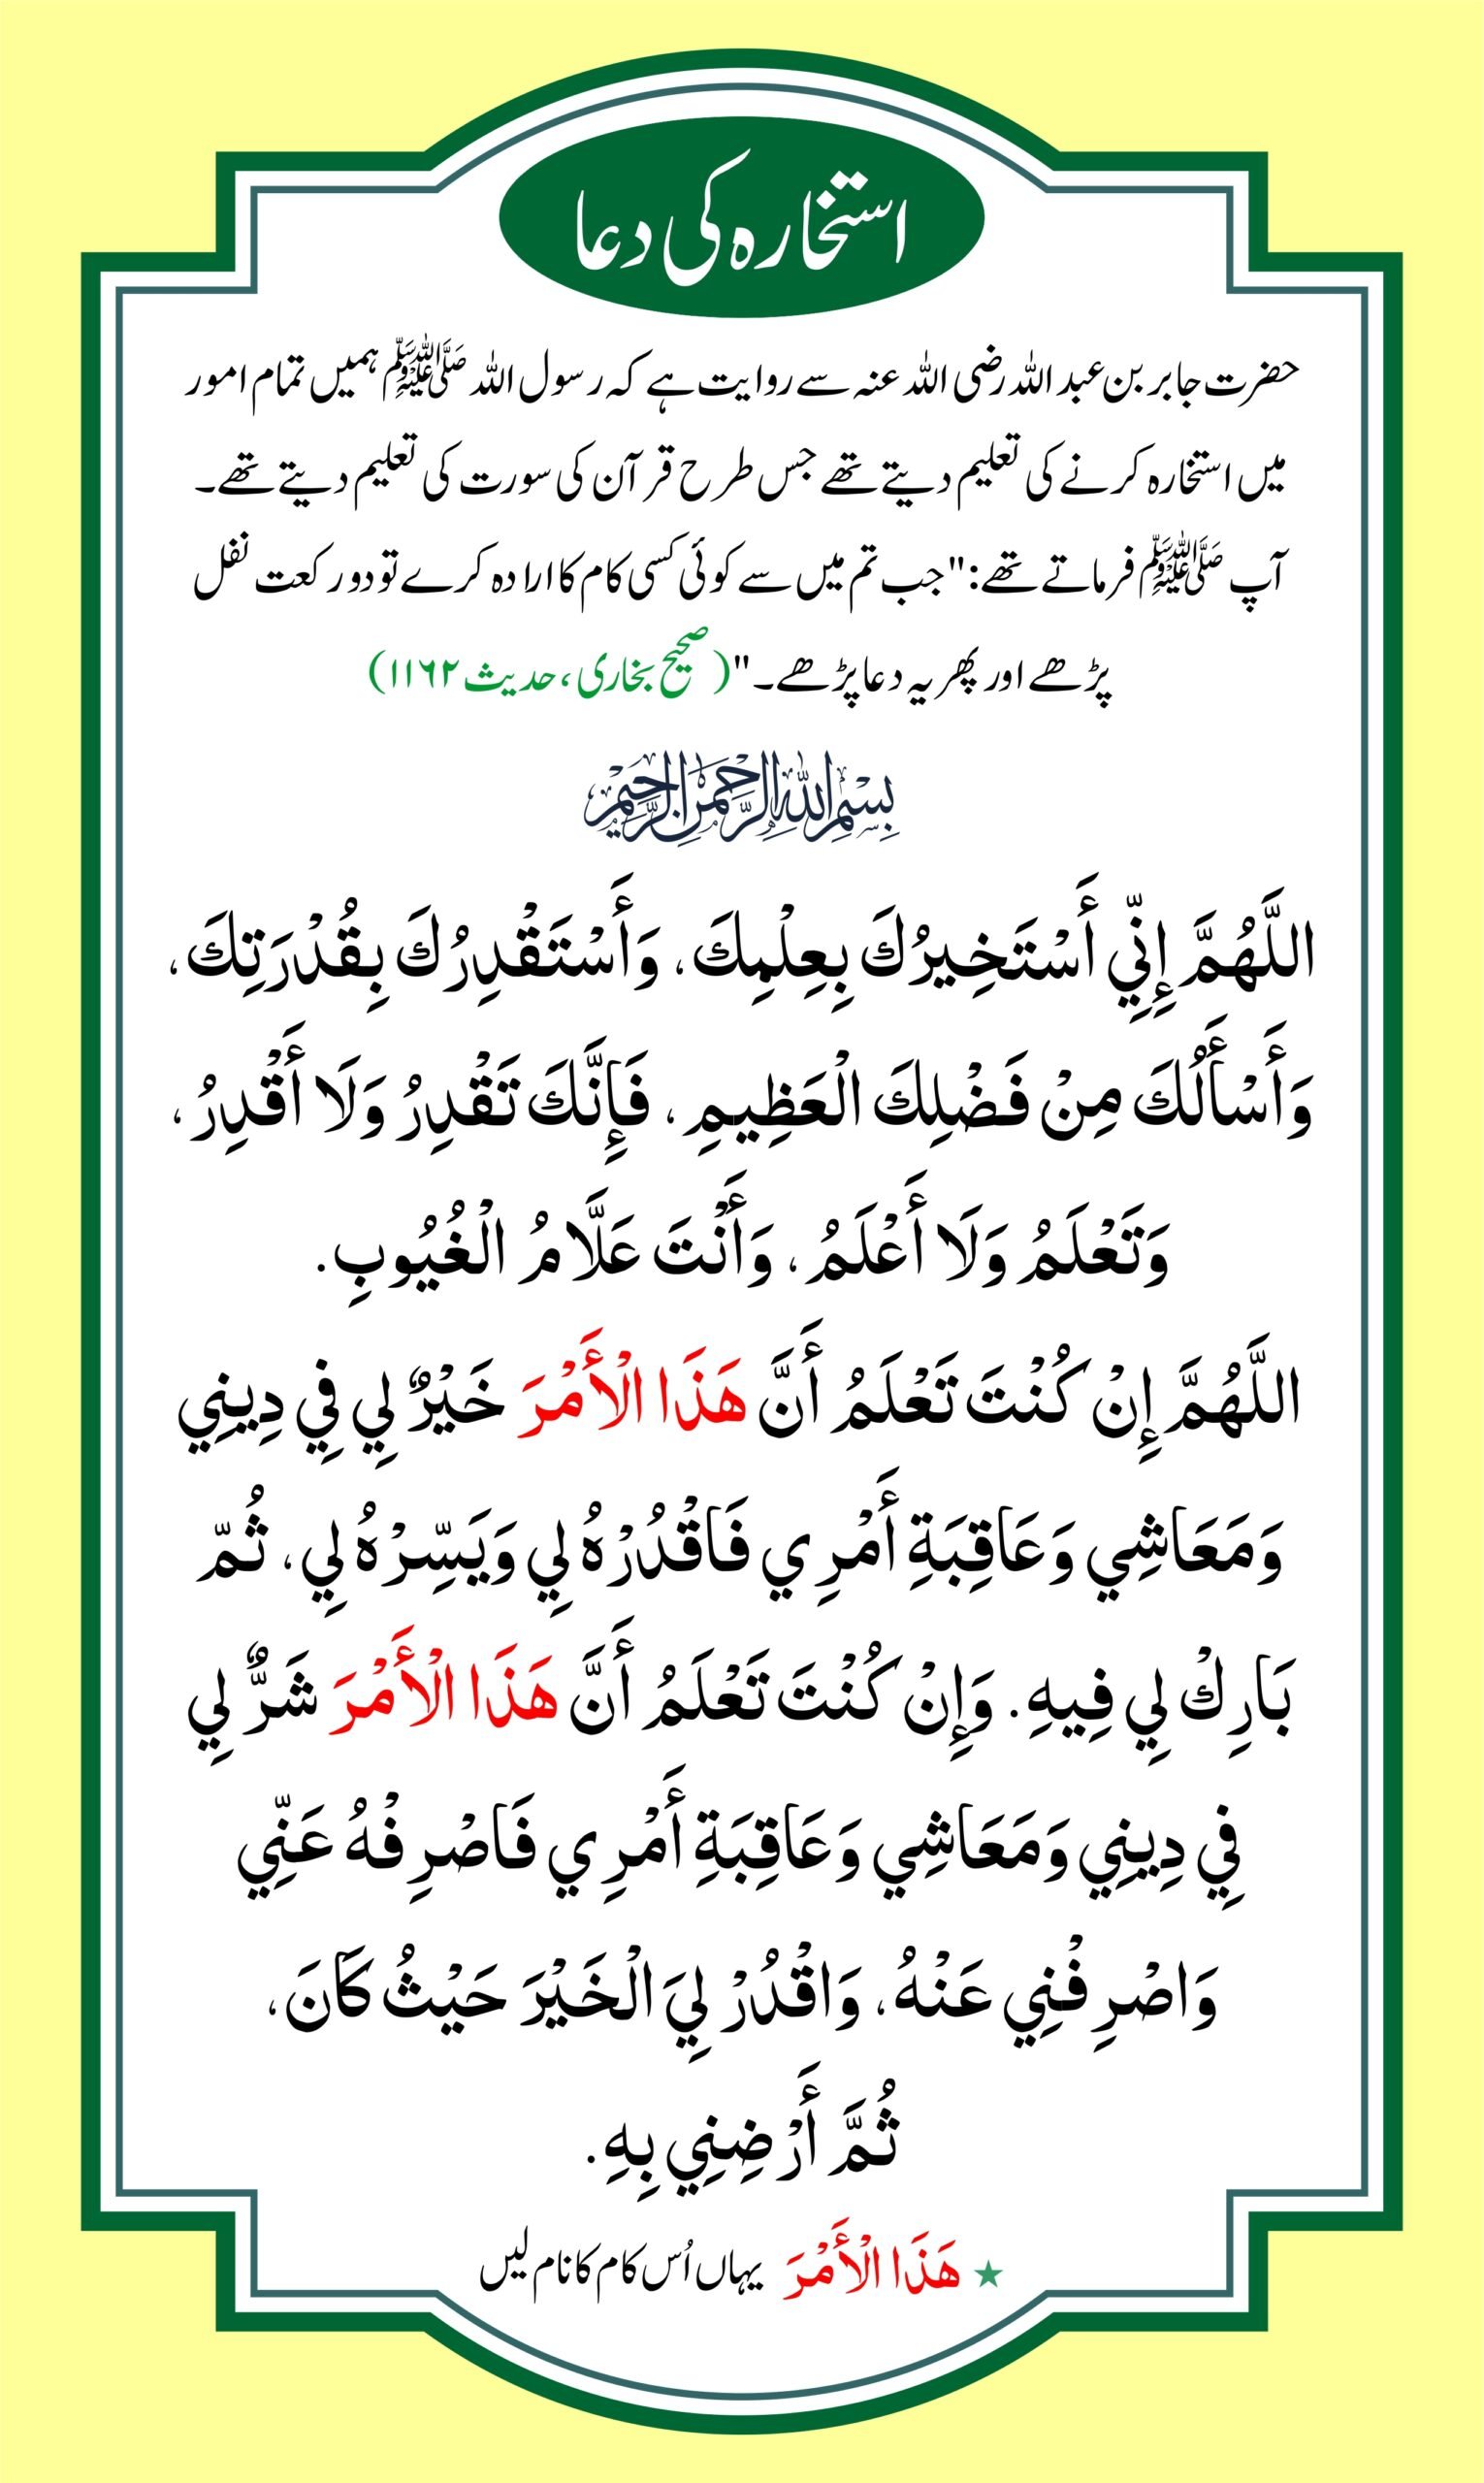 استخارہ کی دعا
حضرت جابر بن عبد اللہ رضی اللہ عنہ سے روایت ہے کہ رسول اللہ ﷺ ہمیں تمام امور
میں استخارہ کرنے کی تعلیم دیتے تھے جس طرح قرآن کی سورت کی تعلیم دیتے تھے۔
آپ ﷺ فرماتے تھے: "جب تم میں سے کوئی کسی کام کا ارادہ کرے تو دو رکعت نفل
پڑھے اور پھر یہ دعا پڑھے۔" (صحیح بخاری، حدیث ۱۱۶۲)
بِسْمِ اللهِ الرَّحْمٰنِ الرَّحِيْمِ
اللَّهُمَّ إِنِّي أَسْتَخِيرُكَ بِعِلْمِكَ، وَأَسْتَقْدِرُكَ بِقُدْرَتِكَ،
وَأَسْأَلُكَ مِنْ فَضْلِكَ الْعَظِيمِ، فَإِنَّكَ تَقْدِرُ وَلَا أَقْدِرُ،
وَتَعْلَمُ وَلَا أَعْلَمُ، وَأَنْتَ عَلَّامُ الْغُيُوبِ.
اللَّهُمَّ إِنْ كُنْتَ تَعْلَمُ أَنَّ هَذَا الْأَمْرَ خَيْرٌ لِي فِي دِينِي
وَمَعَاشِي وَعَاقِبَةِ أَمْرِي فَاقْدُرْهُ لِي وَيَسِّرْهُ لِي، ثُمّ
بَارِكْ لِي فِيهِ. وَإِنْ كُنْتَ تَعْلَمُ أَنَّ هَذَا الْأَمْرَ شَرٌّ لِي
فِي دِينِي وَمَعَاشِي وَعَاقِبَةِ أَمْرِي فَاصْرِفْهُ عَنِّي
وَاصْرِفْنِي عَنْهُ، وَاقْدُرْ لِيَ الْخَيْرَ حَيْثُ كَانَ،
ثُمَّ أَرْضِنِي بِهِ.
★ هَذَا الْأَمْرَ یہاں اُس کام کا نام لیں